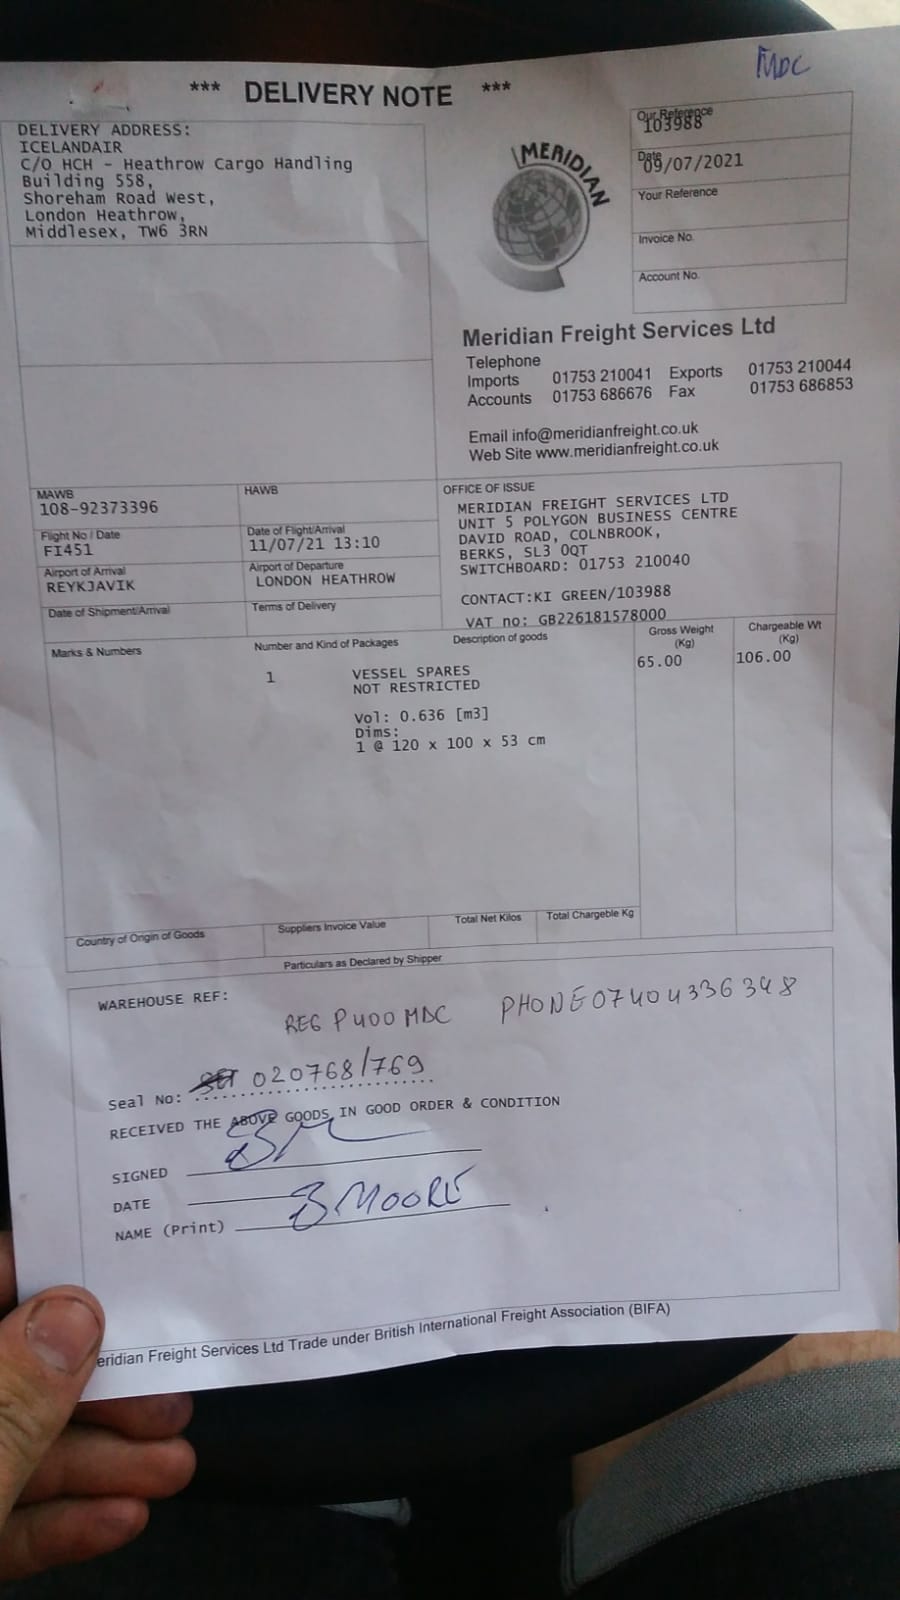 MDC
*** DELIVERY NOTE ***
DELIVERY ADDRESS:
ICELANDAIR
C/O HCH - Heathrow Cargo Handling
Building 558,
Shoreham Road West,
London Heathrow,
Middlesex, TW6 3RN
MERIDIAN
Our Reference
103988
Date
09/07/2021
Your Reference
Invoice No.
Account No.
Meridian Freight Services Ltd
Telephone
Imports 01753 210041 Exports 01753 210044
Accounts 01753 686676 Fax 01753 686853
Email info@meridianfreight.co.uk
Web Site www.meridianfreight.co.uk
MAWB
108-92373396
HAWB
Flight No / Date
FI451
Date of Flight/Arrival
11/07/21 13:10
Airport of Arrival
REYKJAVIK
Airport of Departure
LONDON HEATHROW
Date of Shipment/Arrival
Terms of Delivery
OFFICE OF ISSUE
MERIDIAN FREIGHT SERVICES LTD
UNIT 5 POLYGON BUSINESS CENTRE
DAVID ROAD, COLNBROOK,
BERKS, SL3 0QT
SWITCHBOARD: 01753 210040
CONTACT:KI GREEN/103988
VAT no: GB226181578000
Marks & Numbers
Number and Kind of Packages
Description of goods
Gross Weight
(Kg)
Chargeable Wt
(Kg)
1
VESSEL SPARES
NOT RESTRICTED
65.00
106.00
Vol: 0.636 [m3]
Dims:
1 @ 120 x 100 x 53 cm
Country of Origin of Goods
Suppliers Invoice Value
Total Net Kilos
Total Chargeble Kg
Particulars as Declared by Shipper
WAREHOUSE REF:
REG P400MDC PHONE 07404336348
Seal No: 020768/769
RECEIVED THE ABOVE GOODS IN GOOD ORDER & CONDITION
SIGNED
DATE
NAME (Print) B MOORE
eridian Freight Services Ltd Trade under British International Freight Association (BIFA)